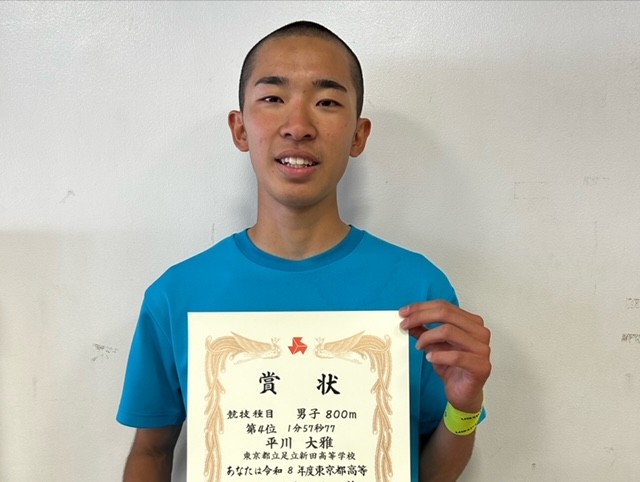 賞 状
競技種目 男子 800m
第4位 1分57秒77
平川 大雅
東京都立足立新田高等学校
あなたは令和 8 年度東京都高等